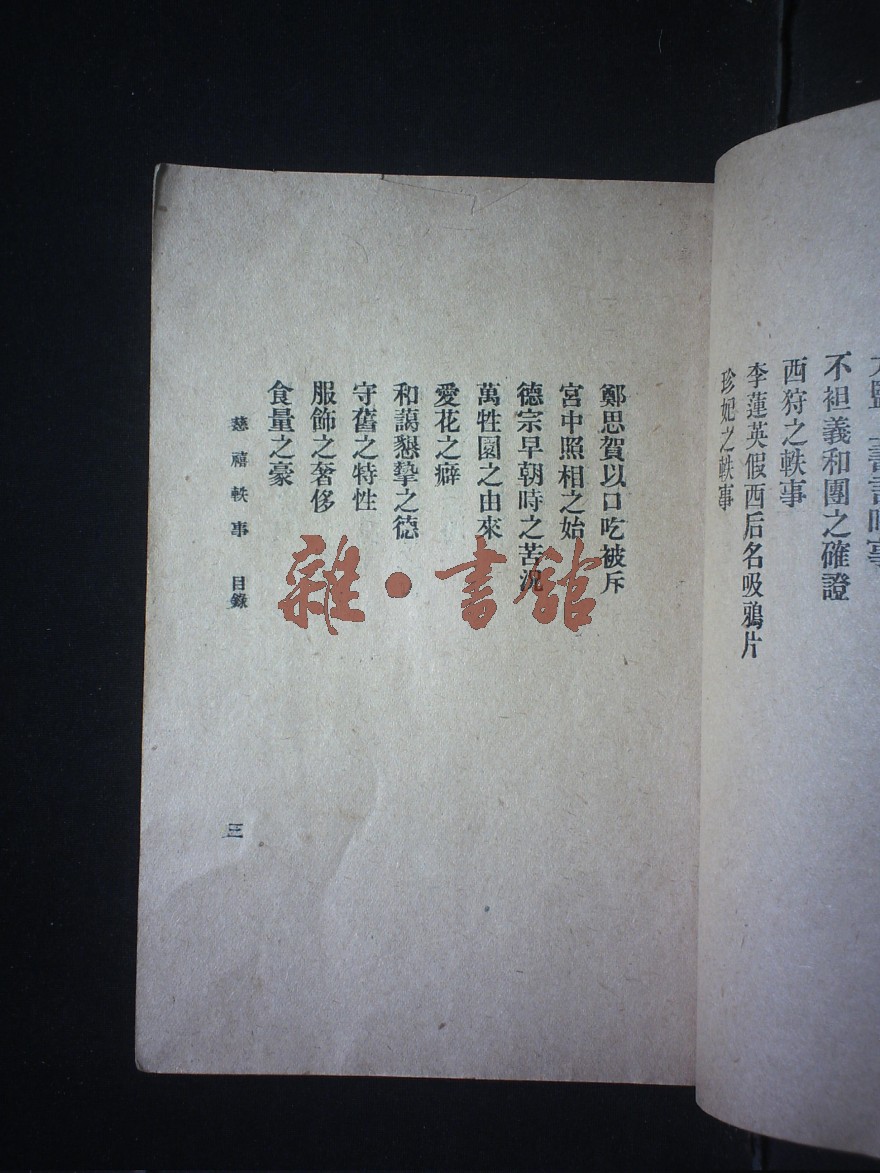 不袒義和團之確證
西狩之軼事
李蓮英假西后名吸鴉片
珍妃之軼事
鄭思賀以口吃被斥
宮中照相之始
德宗早朝時之苦況
萬牲園之由來
愛花之癖
和藹懇摯之德
守舊之特性
服飾之奢侈
食量之豪
慈禧軼事 目錄
三
雜·書館